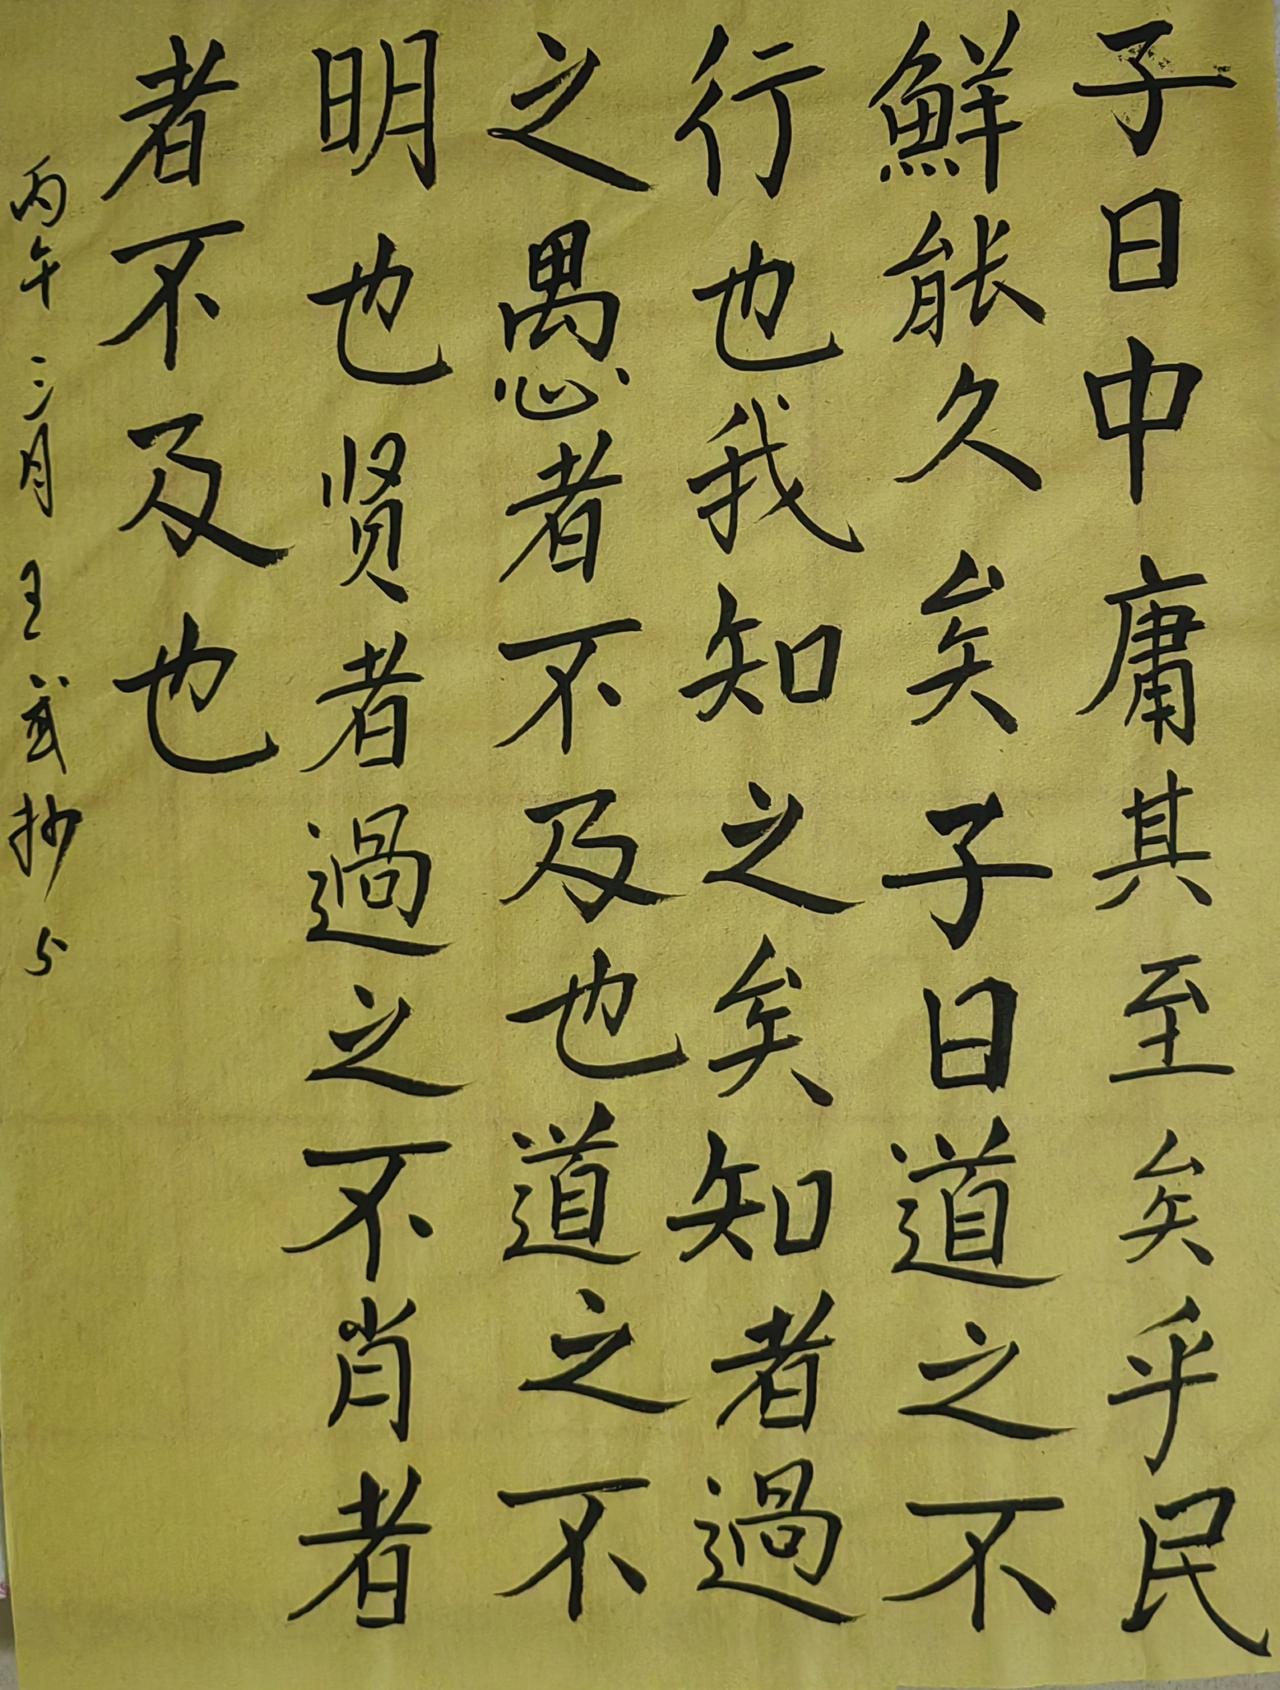 子曰中庸其至矣乎民
鮮能久矣子曰道之不
行也我知之矣知者過
之愚者不及也道之不
明也贤者過之不肖者
者不及也
丙午二月王武抄